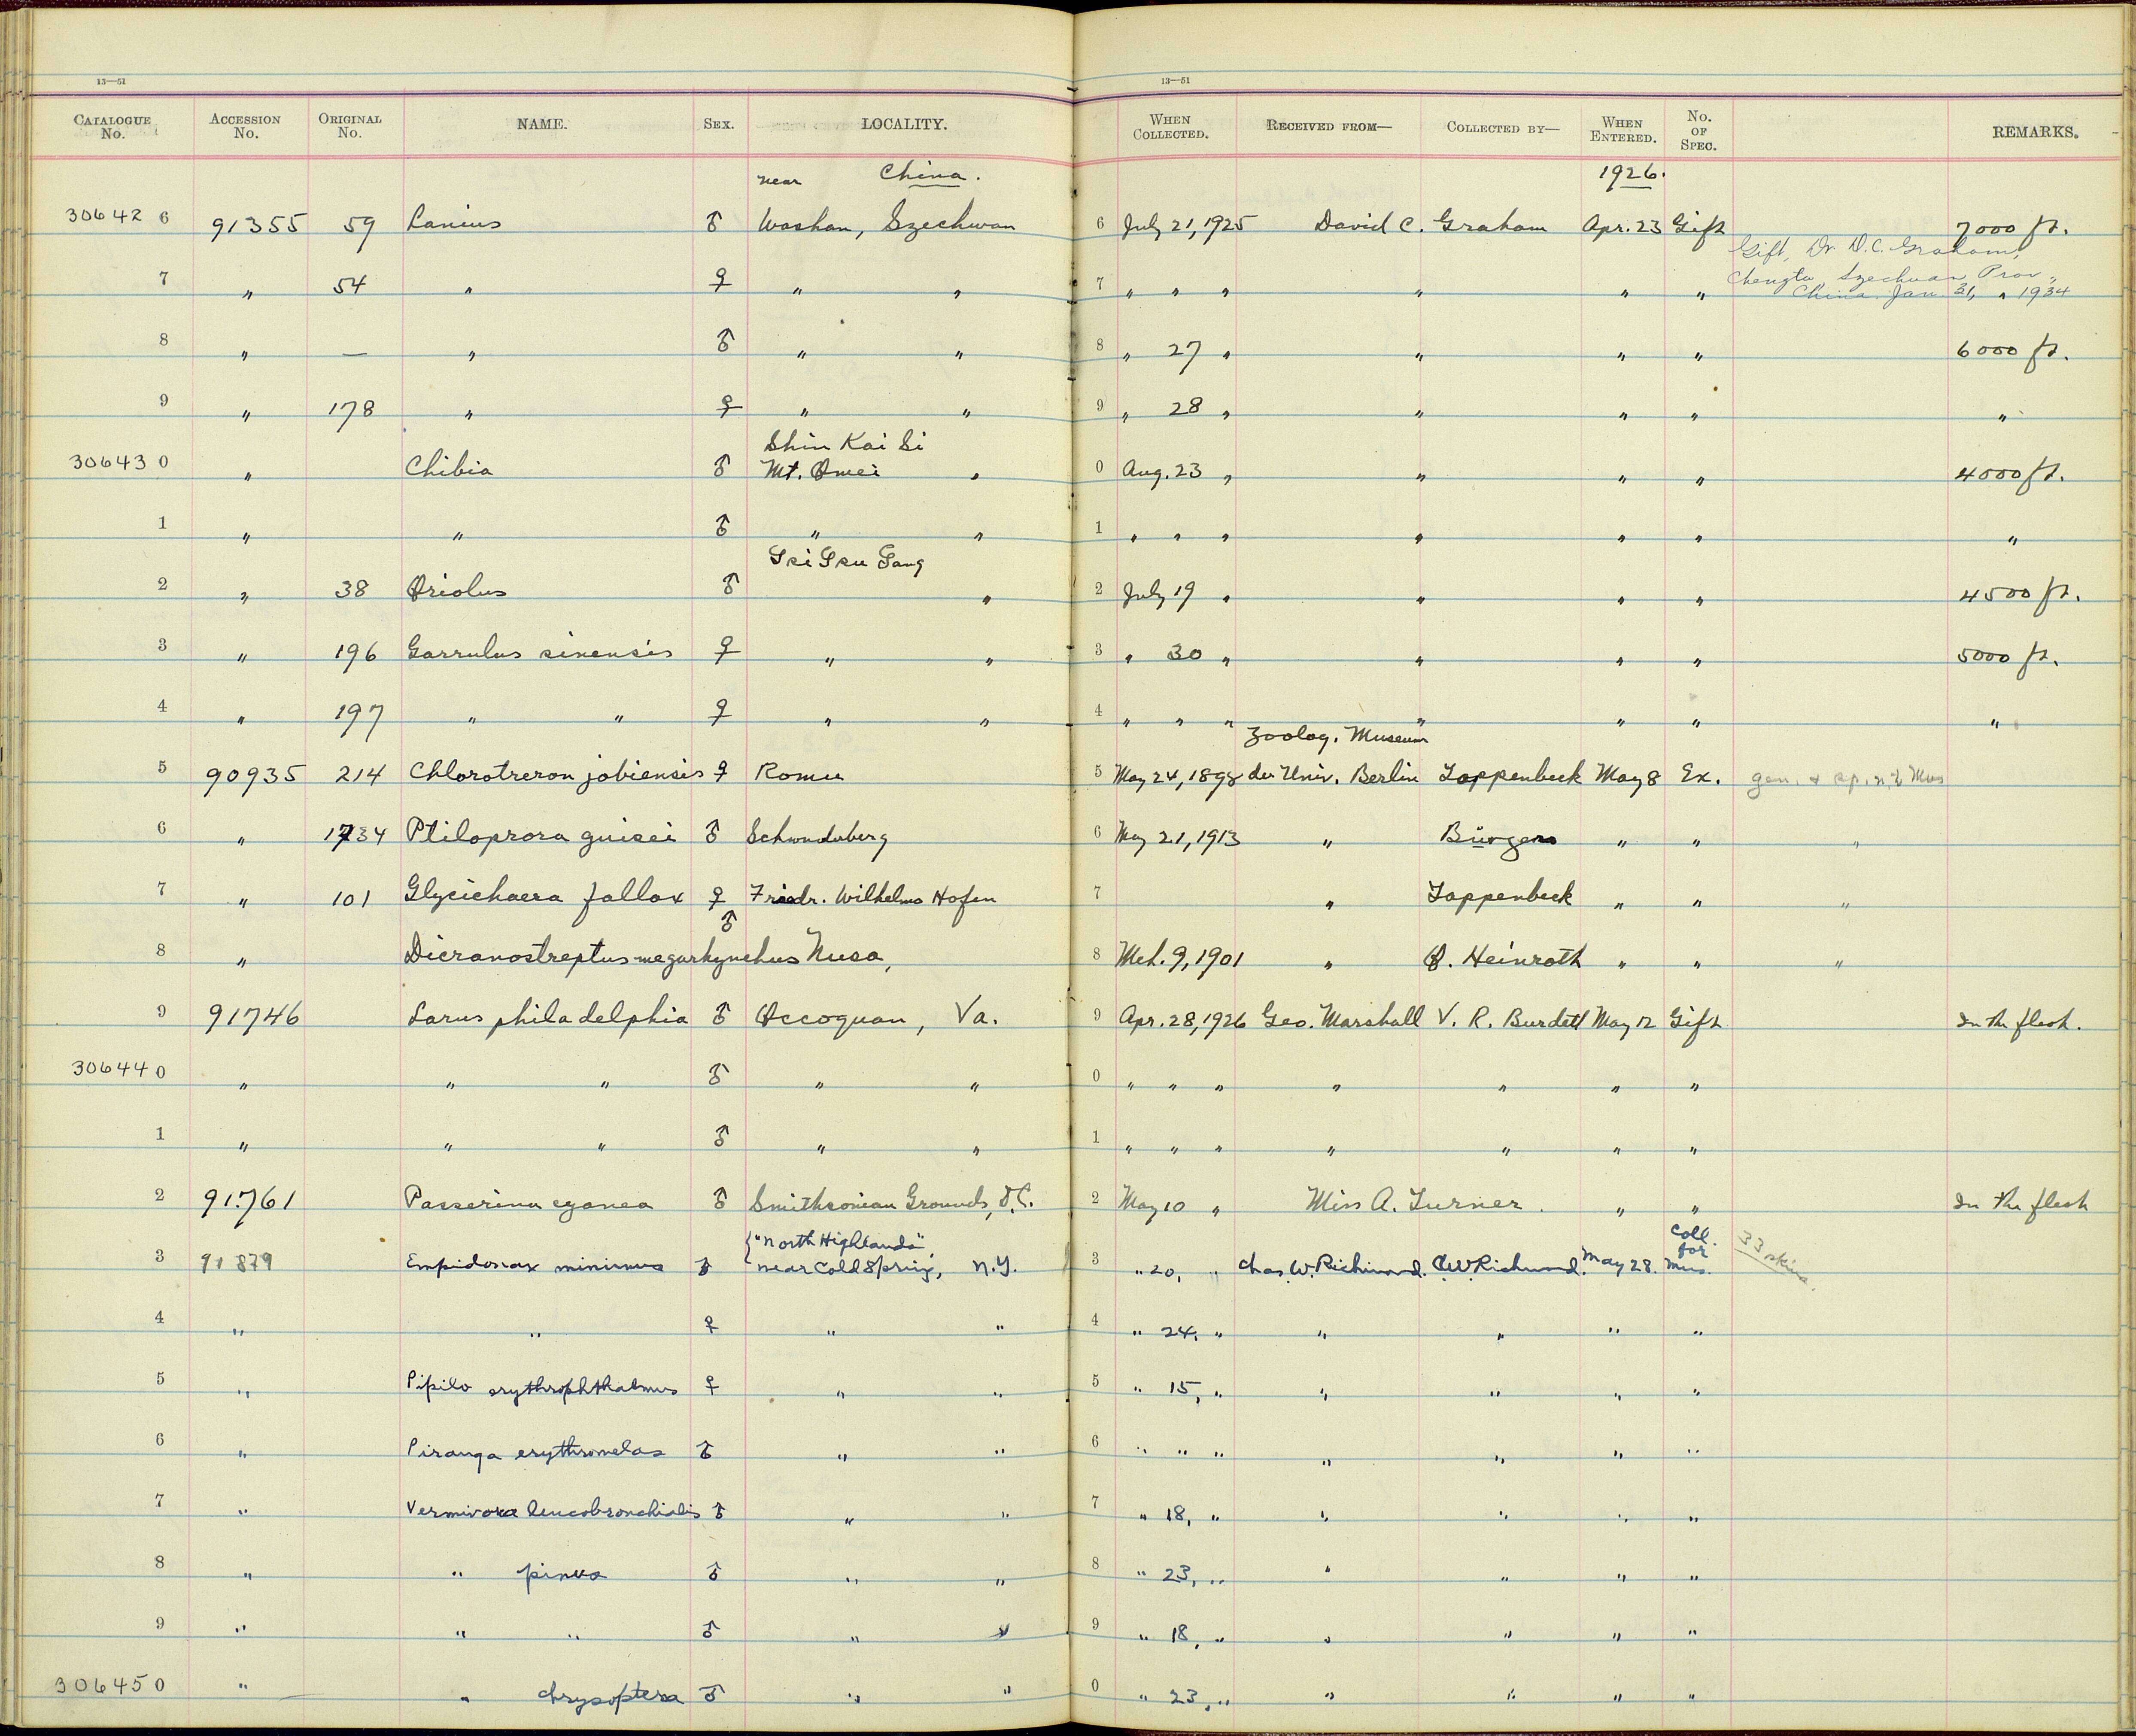 13—51 13—51
CATALOGUE No. ACCESSION No. ORIGINAL No. NAME. SEX. LOCALITY. WHEN COLLECTED. RECEIVED FROM— COLLECTED BY— WHEN ENTERED. No. OF SPEC. REMARKS.
near China. 1926.
30642 6 91355 59 Lanius ♂ Washan, Szechwan 6 July 21, 1925 David C. Graham Apr. 23 Gift 7000 ft.
Gift, Dr. D.C. Graham,
Chengtu, Szechuan Prov.,
China. Jan 31, 1934
7 " 54 " ♀ " " 7 " " " " " " "
8 " — " ♂ " " 8 " 27 " " " " 6000 ft.
9 " 178 " ♀ " " 9 " 28 " " " " "
Shin Kai Si
30643 0 " Chibia ♂ Mt. Omei " 0 Aug. 23 " " " " 4000 ft.
1 " " ♂ " " 1 " " " " " " "
Tsi Tsu Gang
2 " 38 Oriolus ♂ " 2 July 19 " " " " 4500 ft.
3 " 196 Garrulus sinensis ♀ " " 3 " 30 " " " " 5000 ft.
4 " 197 " " ♀ " " 4 " " " " " " "
Zoolog. Museum
5 90935 214 Chlorotreron jobiensis ♀ Ramu 5 May 24, 1898 der Univ. Berlin Tappenbeck May 8 Ex. gen. & sp. n. to Mus
6 " 1734 Ptiloprora guisei ♂ Schraderberg 6 May 21, 1913 " Bürgers " " "
7 " 101 Glycichaera fallax ♀ Friedr. Wilhelms Hafen 7 " Tappenbeck " " "
♂
8 " Dicranostreptus megarhynchus Nusa, 8 Mch. 9, 1901 " O. Heinroth " " "
9 91746 Larus philadelphia ♂ Occoquan, Va. 9 Apr. 28, 1926 Geo. Marshall V. R. Burdett May 12 Gift In the flesh.
30644 0 " " " ♂ " " 0 " " " " " " "
1 " " " ♂ " " 1 " " " " " " "
2 91761 Passerina cyanea ♂ Smithsonian Grounds, D.C. 2 May 10 " Miss A. Turner. " " In the flesh
{"North Highlands" Coll. for
3 91879 Empidonax minimus ♂ near Cold Spring, N.Y. 3 " 20, " Chas. W. Richmond. C.W. Richmond. May 28. Mus. 33 skins.
4 " " ♀ " " 4 " 24, " " " " "
5 " Pipilo erythrophthalmus ♀ " " 5 " 15, " " " " "
6 " Piranga erythromelas ♂ " " 6 " " " " " " "
7 " Vermivora leucobronchialis ♂ " " 7 " 18, " " " " "
8 " " pinus ♂ " " 8 " 23, " " " " "
9 " " " ♂ " " 9 " 18, " " " " "
30645 0 " " chrysoptera ♂ " " 0 " 23, " " " " "